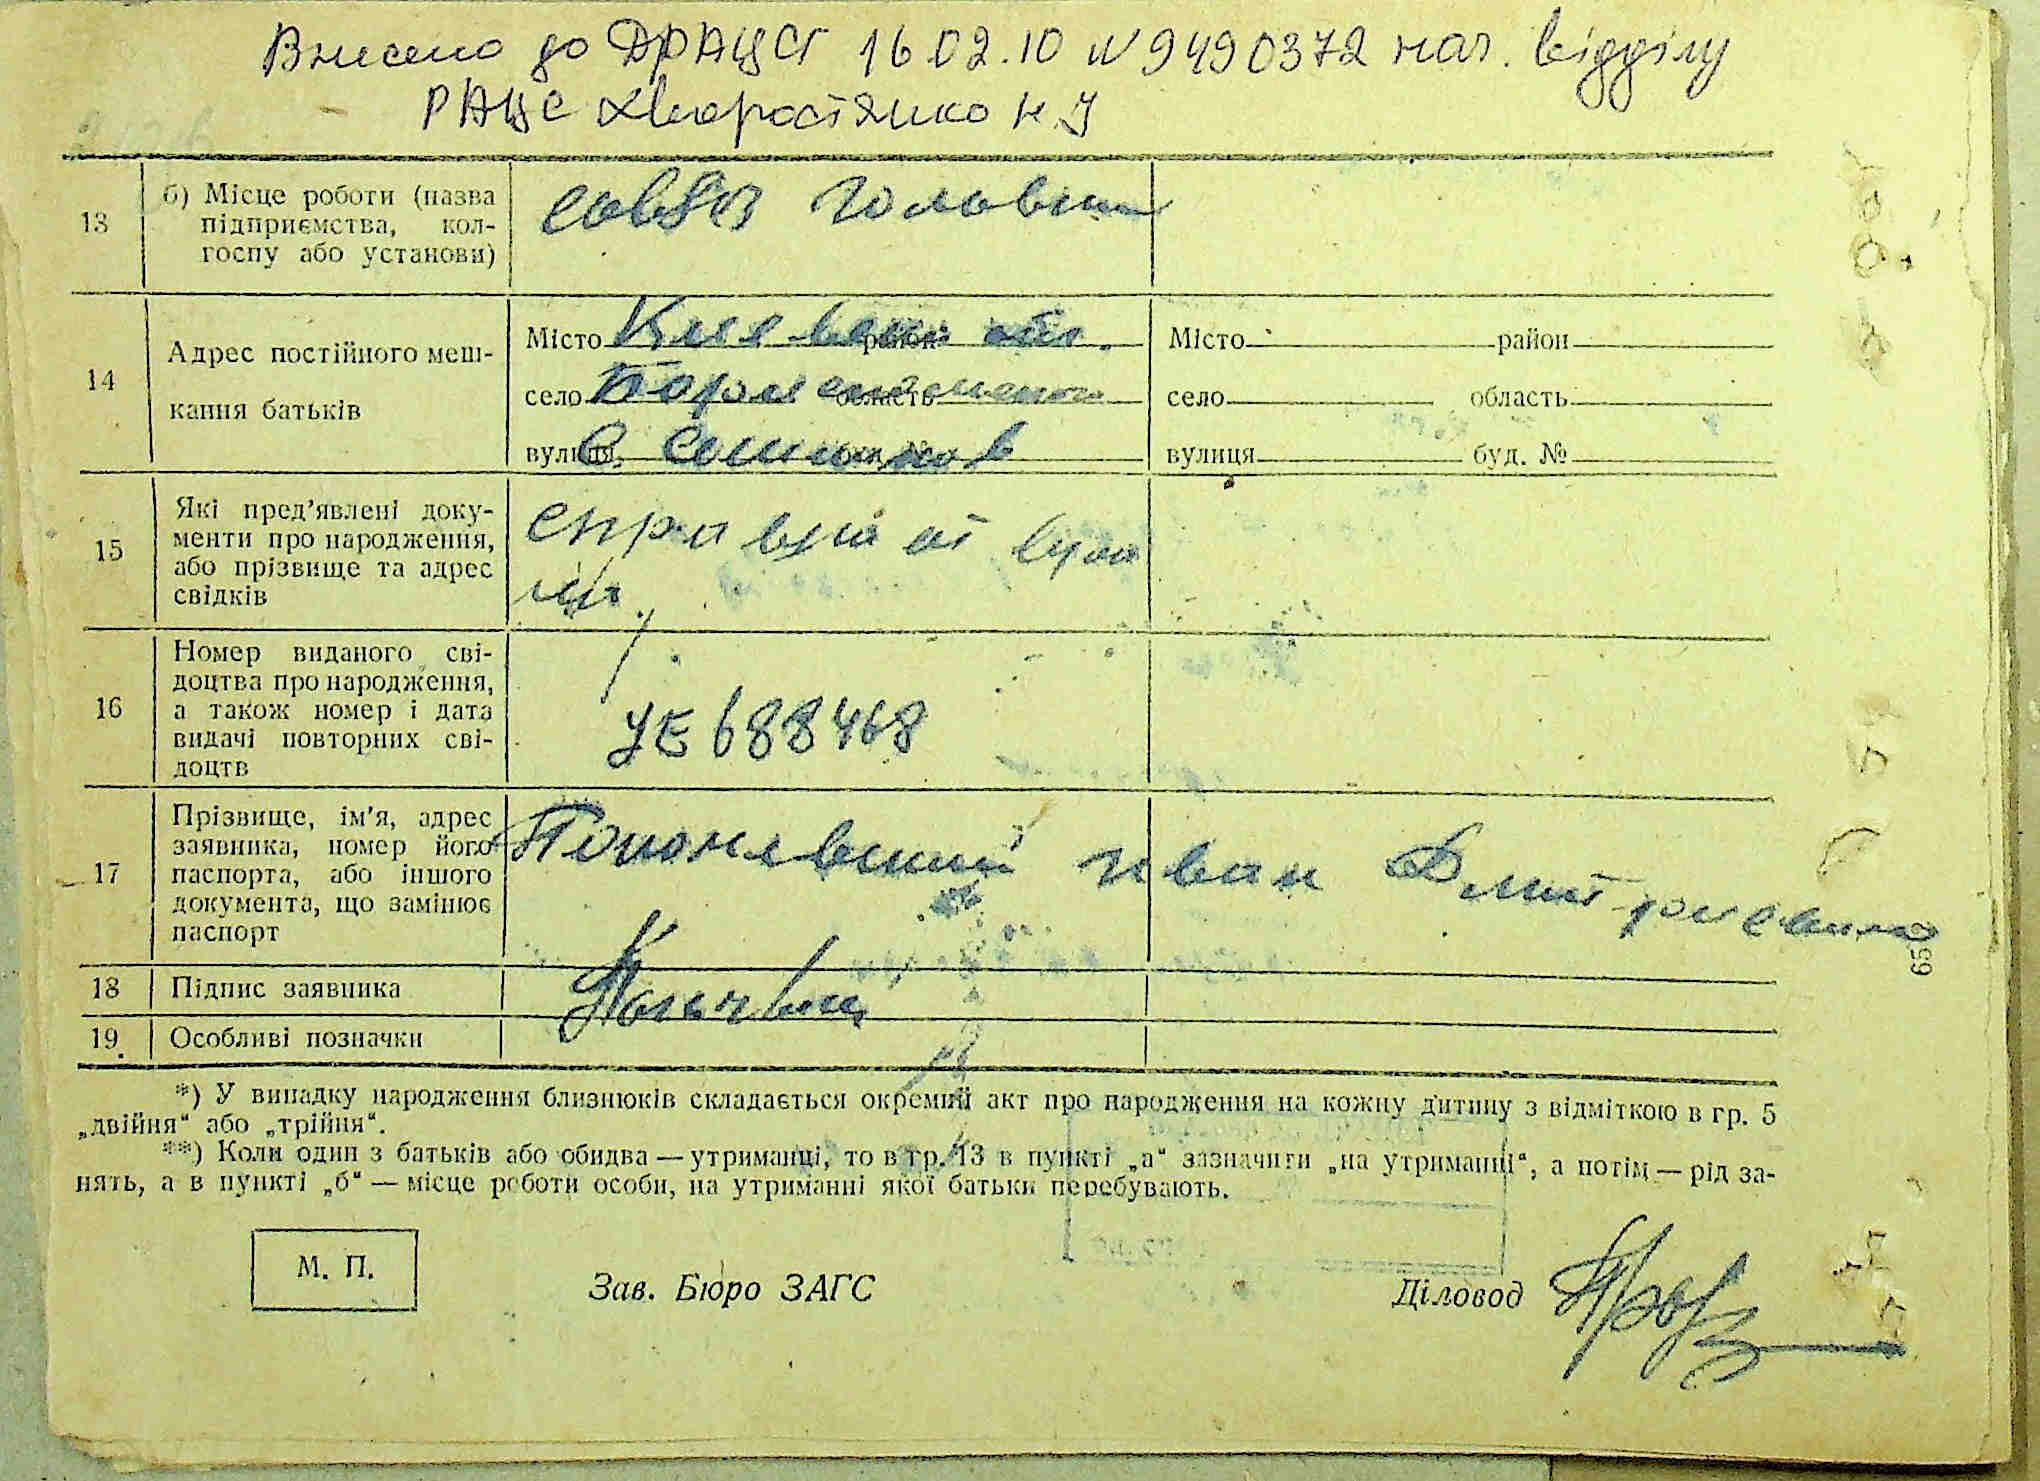 Внесено до ДРАЦСГ 16.02.10 N 9490372 нач. відділу
РАЦС Хворостянко Н.І
13
б) Місце роботи (назва
підприємства, кол-
госпу або установи)
совхоз
14
Адрес постійного меш-
кання батьків
Місто район
село область
вулиця буд. №
Киевская обл.
с
Місто район
село область
вулиця буд. №
15
Які пред’явлені доку-
менти про народження,
або прізвище та адрес
свідків
справка от
16
Номер виданого сві-
доцтва про народження,
а також номер і дата
видачі повторних сві-
доцтв
УЕ 688468
17
Прізвище, ім’я, адрес
заявника, номер його
паспорта, або іншого
документа, що замінює
паспорт
Иван
18
Підпис заявника
19.
Особливі позначки
*) У випадку народження близнюків складається окремий акт про народження на кожну дитину з відміткою в гр. 5
„двійня“ або „трійня“.
**) Коли один з батьків або обидва — утриманці, то в гр. 13 в пункті „а“ зазначити „на утриманні“, а потім — рід за-
нять, а в пункті „б“ — місце роботи особи, на утриманні якої батьки перебувають.
М. П.
Зав. Бюро ЗАГС
Діловод